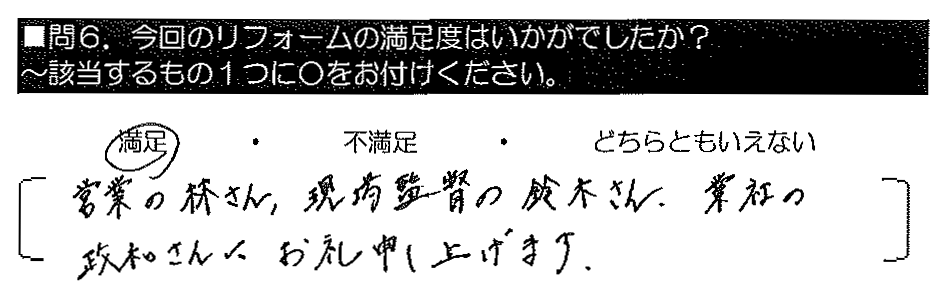 ■問6．今回のリフォームの満足度はいかがでしたか？
～該当するもの1つに○をお付けください。
満足 ・ 不満足 ・ どちらともいえない
営業の林さん，現場監督の鈴木さん．業社の
政和さんへ お礼申し上げます．